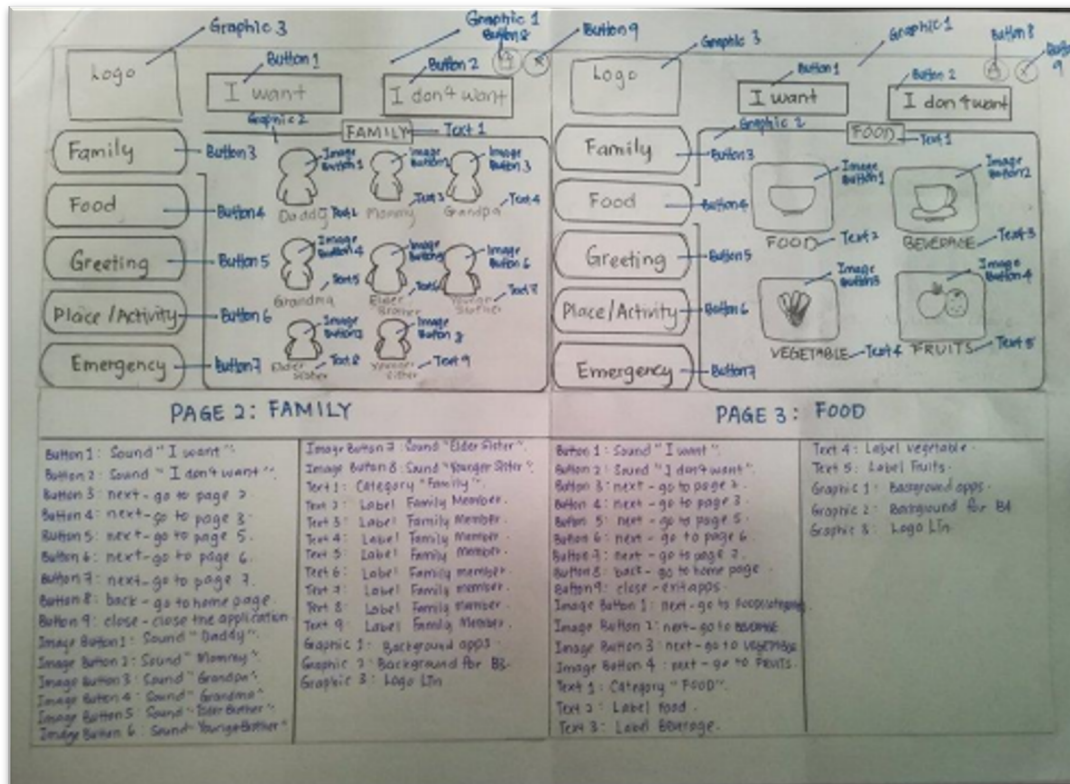 Graphic 3
Graphic 1
Button 8
Button 9
Logo
Button 1
Button 2
I want
I don't want
Graphic 2
FAMILY
Text 1
Family
Button 3
Image Button 1
Image Button 2
Image Button 3
Daddy
Text 2
Mommy
Text 3
Grandpa
Text 4
Food
Button 4
Greeting
Button 5
Image Button 4
Image Button 5
Image Button 6
Grandma
Text 5
Elder Brother
Text 6
Younger Brother
Text 7
Place/Activity
Button 6
Image Button 7
Image Button 8
Elder Sister
Text 8
Younger Sister
Text 9
Emergency
Button 7
Graphic 3
Graphic 1
Button 8
Button 9
Logo
Button 1
Button 2
I want
I don't want
Graphic 2
FOOD
Text 1
Family
Button 3
Image Button 1
Image Button 2
Food
Button 4
FOOD
Text 2
BEVERAGE
Text 3
Greeting
Button 5
Image Button 3
Image Button 4
Place/Activity
Button 6
VEGETABLE
Text 4
FRUITS
Text 5
Emergency
Button 7
PAGE 2: FAMILY
Button 1: Sound "I want".
Button 2: Sound "I don't want".
Button 3: next-go to page 2.
Button 4: next-go to page 3.
Button 5: next-go to page 5.
Button 6: next-go to page 6.
Button 7: next-go to page 7.
Button 8: back - go to home page.
Button 9: close - close the application
Image Button 1: Sound "Daddy".
Image Button 2: Sound "Mommy".
Image Button 3: Sound "Grandpa".
Image Button 4: Sound "Grandma".
Image Button 5: Sound "Elder Brother".
Image Button 6: Sound "Younger Brother"
Image Button 7: Sound "Elder Sister".
Image Button 8: Sound "Younger Sister".
Text 1: Category "Family".
Text 2: Label Family Member.
Text 3: Label Family Member.
Text 4: Label Family Member.
Text 5: Label Family Member.
Text 6: Label Family member.
Text 7: Label Family member.
Text 8: Label Family member.
Text 9: Label Family Member.
Graphic 1: Background apps.
Graphic 2: Background for B3.
Graphic 3: Logo
PAGE 3: FOOD
Button 1: Sound "I want".
Button 2: Sound "I don't want".
Button 3: next-go to page 2.
Button 4: next-go to page 3.
Button 5: next-go to page 5.
Button 6: next-go to page 6.
Button 7: next-go to page 7.
Button 8: back-go to home page.
Button 9: close-exit apps.
Image Button 1: next-go to
Image Button 2: next-go to BEVERAGE
Image Button 3: next-go to VEGETABLE
Image Button 4: next-go to FRUITS.
Text 1: Category "FOOD".
Text 2: Label Food.
Text 3: Label Beverage.
Text 4: Label vegetable.
Text 5: Label Fruits.
Graphic 1: Background apps.
Graphic 2: Background for B4
Graphic 3: Logo